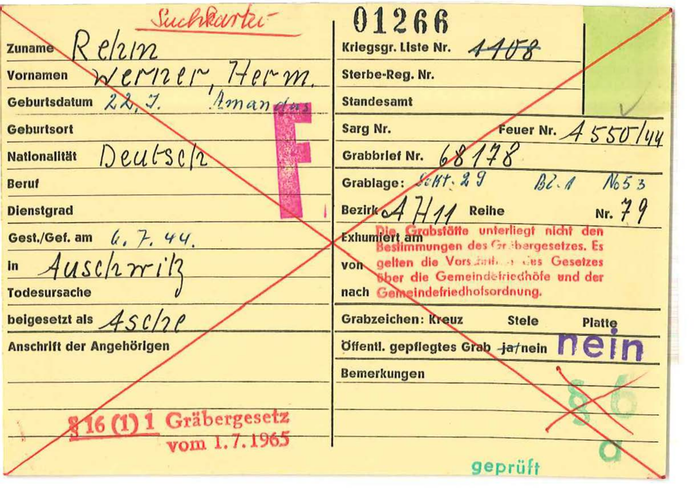 Suchkartei
01266
Zuname Rehn
Vornamen Werner, Herm.
Geburtsdatum 22 J. Amandus
Geburtsort
Nationalität Deutsch
Beruf
Dienstgrad
Gest./Gef. am 6. 7. 44.
in Auschwitz
Todesursache
beigesetzt als Asche
Anschrift der Angehörigen
§ 16 (1) 1 Gräbergesetz
vom 1.7.1965
F
Kriegsgr. Liste Nr. 1108
Sterbe-Reg. Nr.
Standesamt
Sarg Nr. Feuer Nr. A 550/44
Grabbrief Nr. 68178
Grablage: 29 Bl. 1 No 53
Bezirk AH11 Reihe Nr. 79
Exhumiert am
von
nach
Die Grabstätte unterliegt nicht den
Bestimmungen des Gräbergesetzes. Es
gelten die Vorschriften des Gesetzes
über die Gemeindefriedhöfe und der
Gemeindefriedhofsordnung.
Grabzeichen: Kreuz Stele Platte
Öffentl. gepflegtes Grab ja/nein nein
Bemerkungen
§ 6
a
geprüft